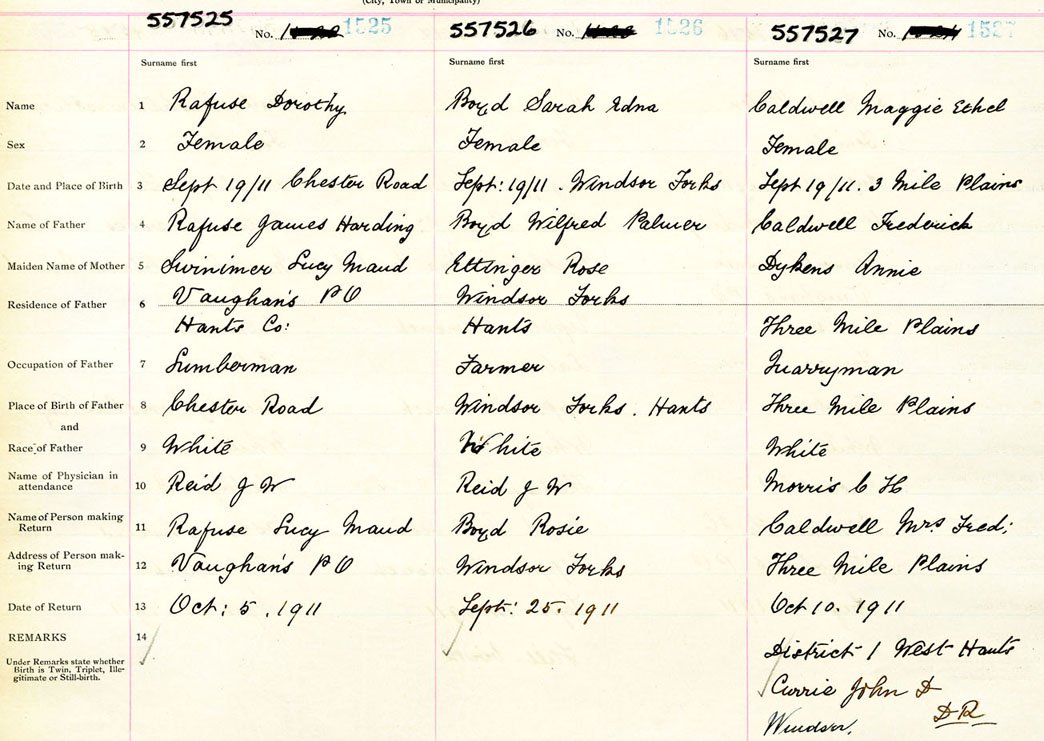 (City, Town or Municipality)
557525 No. 1525 557526 No. 1526 557527 No. 1527
Surname first Surname first Surname first
Name 1 Rafuse Dorothy Boyd Sarah Edna Caldwell Maggie Ethel
Sex 2 Female Female Female
Date and Place of Birth 3 Sept 19/11 Chester Road Sept: 19/11 . Windsor Forks Sept 19/11. 3 Mile Plains
Name of Father 4 Rafuse James Harding Boyd Wilfred Palmer Caldwell Frederick
Maiden Name of Mother 5 Swinimer Lucy Maud Ettinger Rose Dykens Annie
Residence of Father 6 Vaughan's P O Windsor Forks
Hants Co: Hants Three Mile Plains
Occupation of Father 7 Lumberman Farmer Quarryman
Place of Birth of Father 8 Chester Road Windsor Forks . Hants Three Mile Plains
and
Race of Father 9 White White White
Name of Physician in
attendance 10 Reid J W Reid J W Morris C H
Name of Person making
Return 11 Rafuse Lucy Maud Boyd Rosie Caldwell Mrs Fred:
Address of Person mak-
ing Return 12 Vaughan's P O Windsor Forks Three Mile Plains
Date of Return 13 Oct: 5 . 1911 Sept: 25. 1911 Oct 10. 1911
REMARKS 14
District 1 West Hants
Under Remarks state whether
Birth is Twin, Triplet, Ille-
gitimate or Still-birth.
Currie John D
D R
Windsor.